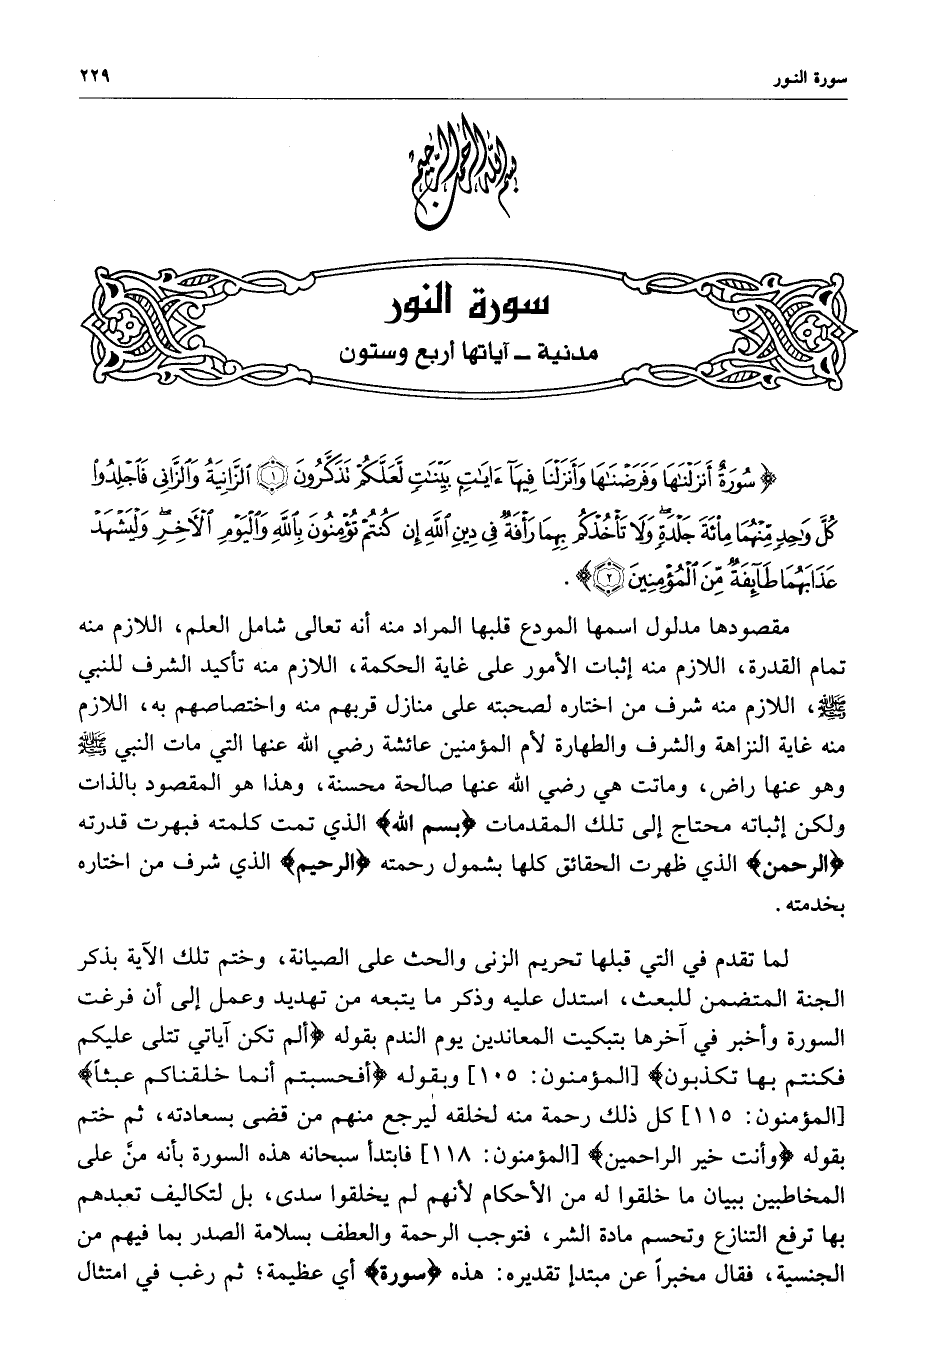 سورة النور ٢٢٩
بسم الله الرحمن الرحيم
سورة النور
مدنية ــ آياتها أربع وستون
﴿ سُورَةٌ أَنزَلْنَٰهَا وَفَرَضْنَٰهَا وَأَنزَلْنَا فِيهَآ ءَايَٰتٍۭ بَيِّنَٰتٍ لَّعَلَّكُمْ تَذَكَّرُونَ ﴿١﴾ ٱلزَّانِيَةُ وَٱلزَّانِى فَٱجْلِدُوا۟
كُلَّ وَٰحِدٍ مِّنْهُمَا مِا۟ئَةَ جَلْدَةٍۖ وَلَا تَأْخُذْكُم بِهِمَا رَأْفَةٌ فِى دِينِ ٱللَّهِ إِن كُنتُمْ تُؤْمِنُونَ بِٱللَّهِ وَٱلْيَوْمِ ٱلْأَخِرِۖ وَلْيَشْهَدْ
عَذَابَهُمَا طَآئِفَةٌ مِّنَ ٱلْمُؤْمِنِينَ ﴿٢﴾ ﴾ .
مقصودها مدلول اسمها المودع قلبها المراد منه أنه تعالى شامل العلم، اللازم منه
تمام القدرة، اللازم منه إثبات الأمور على غاية الحكمة، اللازم منه تأكيد الشرف للنبي
ﷺ، اللازم منه شرف من اختاره لصحبته على منازل قربهم منه واختصاصهم به، اللازم
منه غاية النزاهة والشرف والطهارة لأم المؤمنين عائشة رضي الله عنها التي مات النبي ﷺ
وهو عنها راض، وماتت هي رضي الله عنها صالحة محسنة، وهذا هو المقصود بالذات
ولكن إثباته محتاج إلى تلك المقدمات ﴿بسم الله﴾ الذي تمت كلمته فبهرت قدرته
﴿الرحمن﴾ الذي ظهرت الحقائق كلها بشمول رحمته ﴿الرحيم﴾ الذي شرف من اختاره
بخدمته .
لما تقدم في التي قبلها تحريم الزنى والحث على الصيانة، وختم تلك الآية بذكر
الجنة المتضمن للبعث، استدل عليه وذكر ما يتبعه من تهديد وعمل إلى أن فرغت
السورة وأخبر في آخرها بتبكيت المعاندين يوم الندم بقوله ﴿ألم تكن آياتي تتلى عليكم
فكنتم بها تكذبون﴾ [المؤمنون: ١٠٥] وبقوله ﴿أفحسبتم أنما خلقناكم عبثاً﴾
[المؤمنون: ١١٥] كل ذلك رحمة منه لخلقه ليرجع منهم من قضى بسعادته، ثم ختم
بقوله ﴿وأنت خير الراحمين﴾ [المؤمنون: ١١٨] فابتدأ سبحانه هذه السورة بأنه منَّ على
المخاطبين ببيان ما خلقوا له من الأحكام لأنهم لم يخلقوا سدى، بل لتكاليف تعبدهم
بها ترفع التنازع وتحسم مادة الشر، فتوجب الرحمة والعطف بسلامة الصدر بما فيهم من
الجنسية، فقال مخبراً عن مبتدإ تقديره: هذه ﴿سورة﴾ أي عظيمة؛ ثم رغب في امتثال